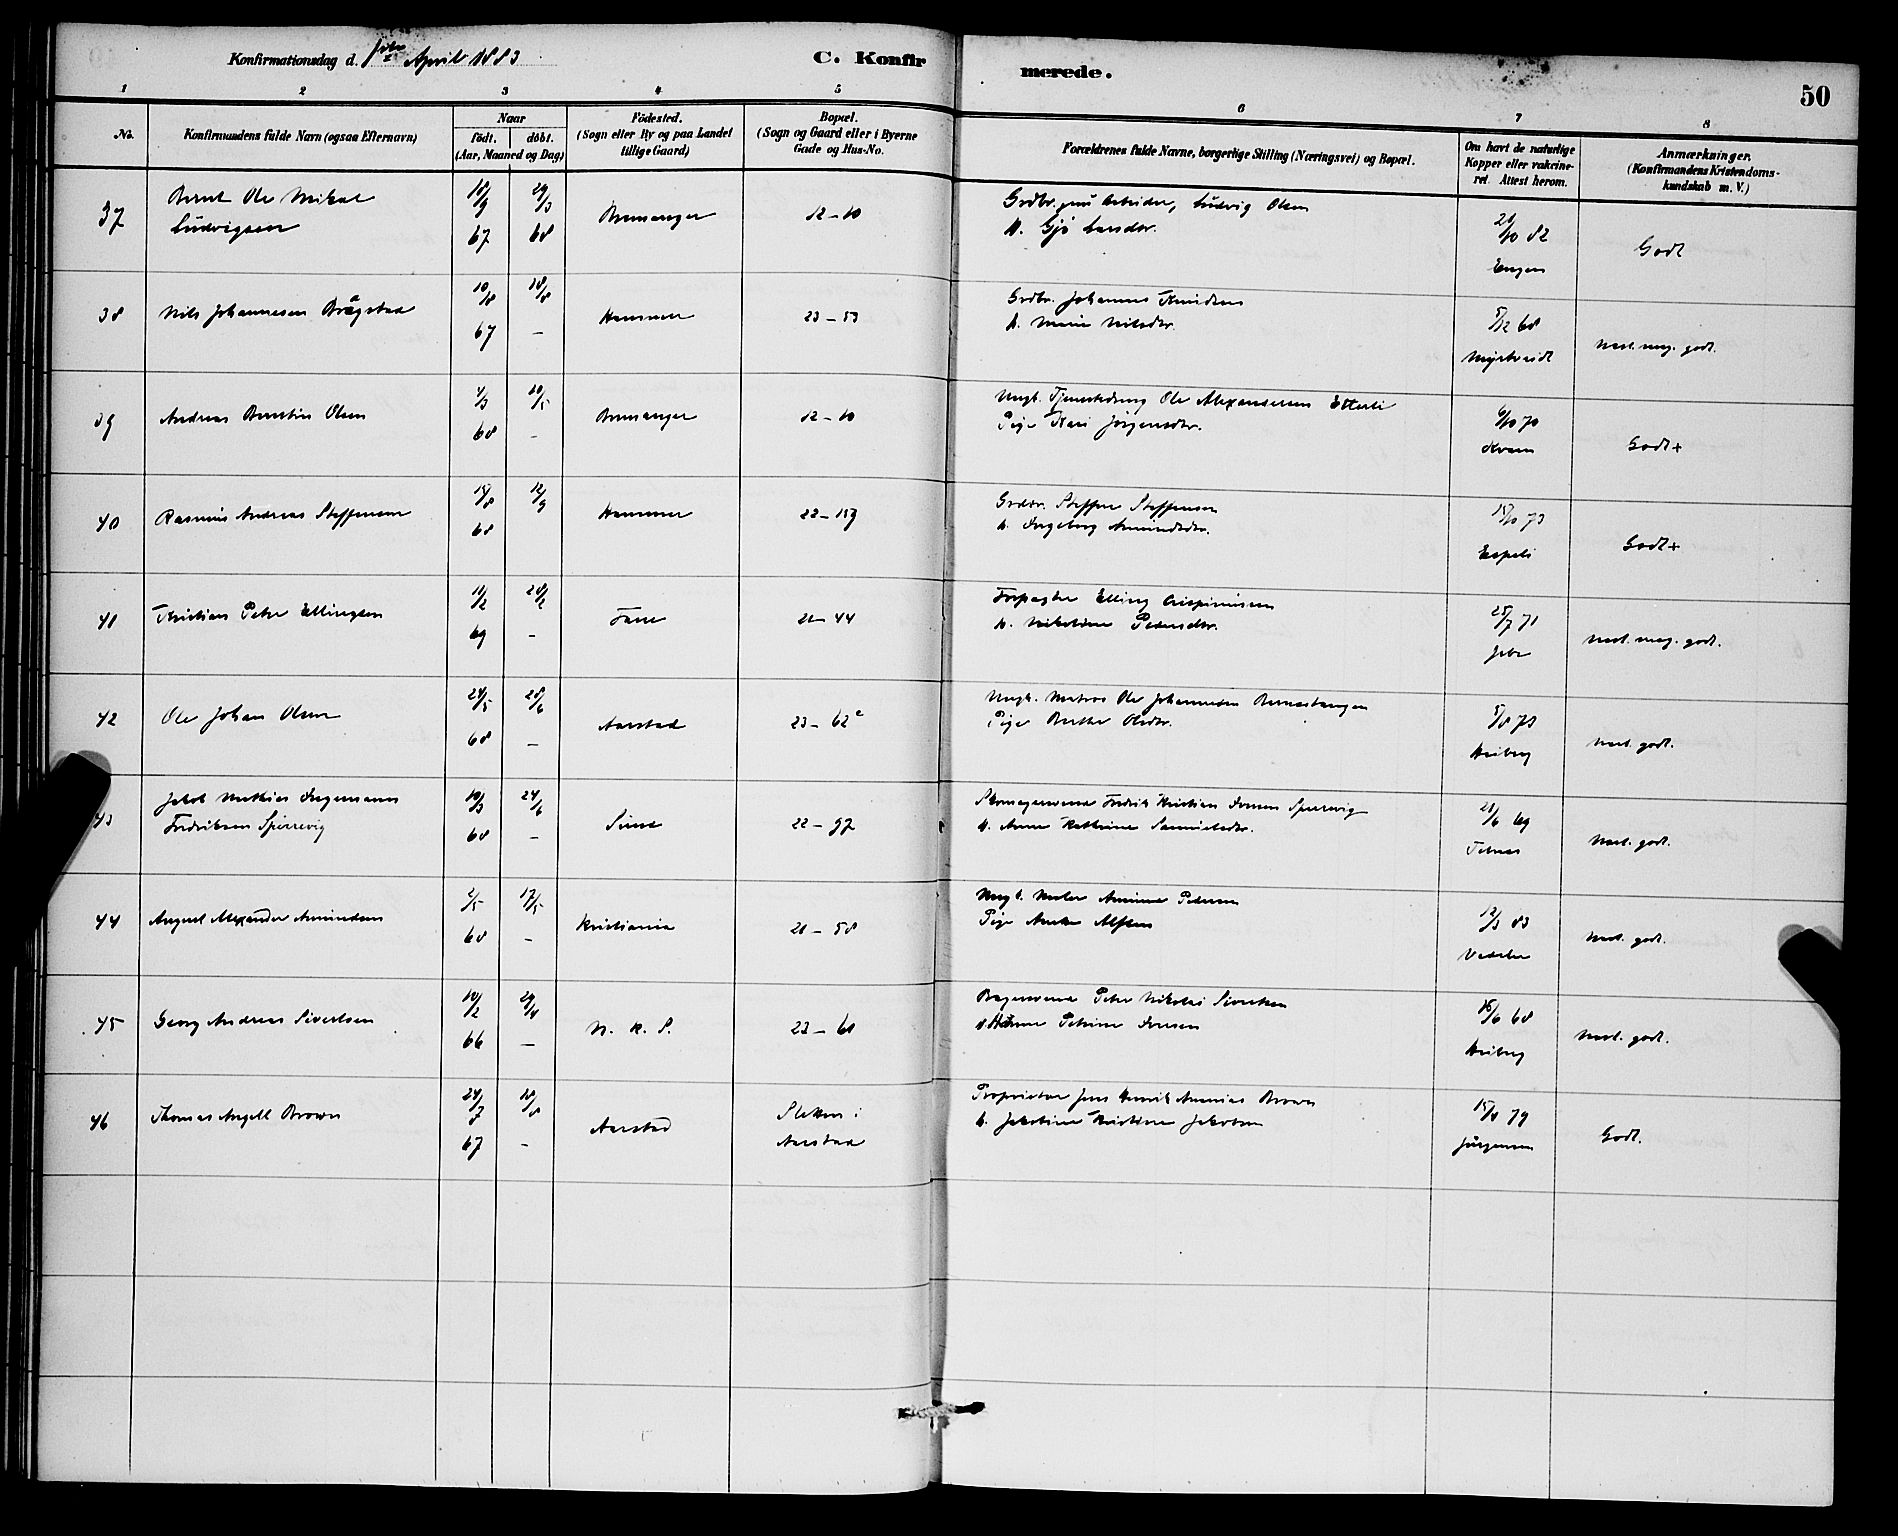 Konfirmationsdag d. April 1883
C. Konfir
merede.
50
1 2 3 4 5 6 7 8
No.
Konfirmandens fulde Navn (ogsaa Efternavn)
Naar
födt. döbt.
(Aar, Maaned og Dag)
Födested.
(Sogn eller By og paa Landet
tillige Gaard)
Bopæl.
(Sogn og Gaard eller i Byerne
Gade og Hus-No.
Forældrenes fulde Navne, borgerlige Stilling (Næringsvei) og Bopæl.
Om havt de naturlige
Kopper eller vakcine-
ret. Attest herom.
Anmærkninger.
(Konfirmandens Kristendoms-
kundskab m. V.)
37 Bernt Ole Mikal
Ludvigsen
18/9 67 29/3 68
Bremanger
12-10
Arbeider, Ludvig Olsen
h. Gjö Larsdtr.
/10 82
Engen
Godt
38 Nils Johannesen Brøgstad
10/8 67 18/8 -
Hammer
23-53
Grdbr. Johannes Knudsen
h. Marie Nilsdtr.
5/12 68
Nast. meg. godt.
39 Andreas Berntin Olsen
/3 68 10/5 -
Bremanger
12-10
Ungk. Tjenestedreng Ole Alexandersen
Pige Kari Jörgensdtr.
6/10 70
Godt+
40 Rasmus Andreas Steffensen
15/8 68 12/9
Hammer
22-157
Steffen Steffensen
h. Ingeborg Amundsdtr.
15/10 73
Espeli
Godt+
41 Kristian Peter Ellingsen
11/2 69 28/2 -
Fane
21-44
Forpagter Elling Crispinusen
h. Nikoline Pedersdtr.
25/7 71
Nast. meg. godt.
42 Ole Johan Olsen
24/5 68 28/6 -
Aarstad
23-62c
Ungk. Matros Ole Johannesen
Pige Berthe Olsdtr.
5/8 73
Heiberg
Nast. godt.
43 Jakob Mathias Ingemann
Fredriksen Spærrevig
10/3 68 24/6 -
22-97
Skomagersvend Fredrik Kristian Iversen Sperrevig
h. Anne Kathrine Samuelsdtr.
21/6 69
Nast. godt.
44 August Alexander Amundsen
2/5 68 17/5 -
Kristiania
21-58
Ungk. Maler Amund Petersen
Pige
12/3 83
Vedeler
Nast. godt.
45 Georg Andreas Sivertsen
10/2 66 29/4 -
N. K. S.
23-61
Bagersvend Peter Nikolai Sivertsen
h. Hanne Petrine Iversen
16/6 68
Heiberg
Nast. godt.
46 Thomas Angell Brown
24/7 67 28/8 -
Aarstad
Sletten i
Aarstad
Proprietær Jens Henrik Ananias Brown
h. Jakobine Kristine Jakobsen
15/4 79
Jürgensen
Godt.